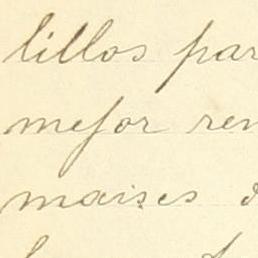 lillos par
mejor ren
maises d